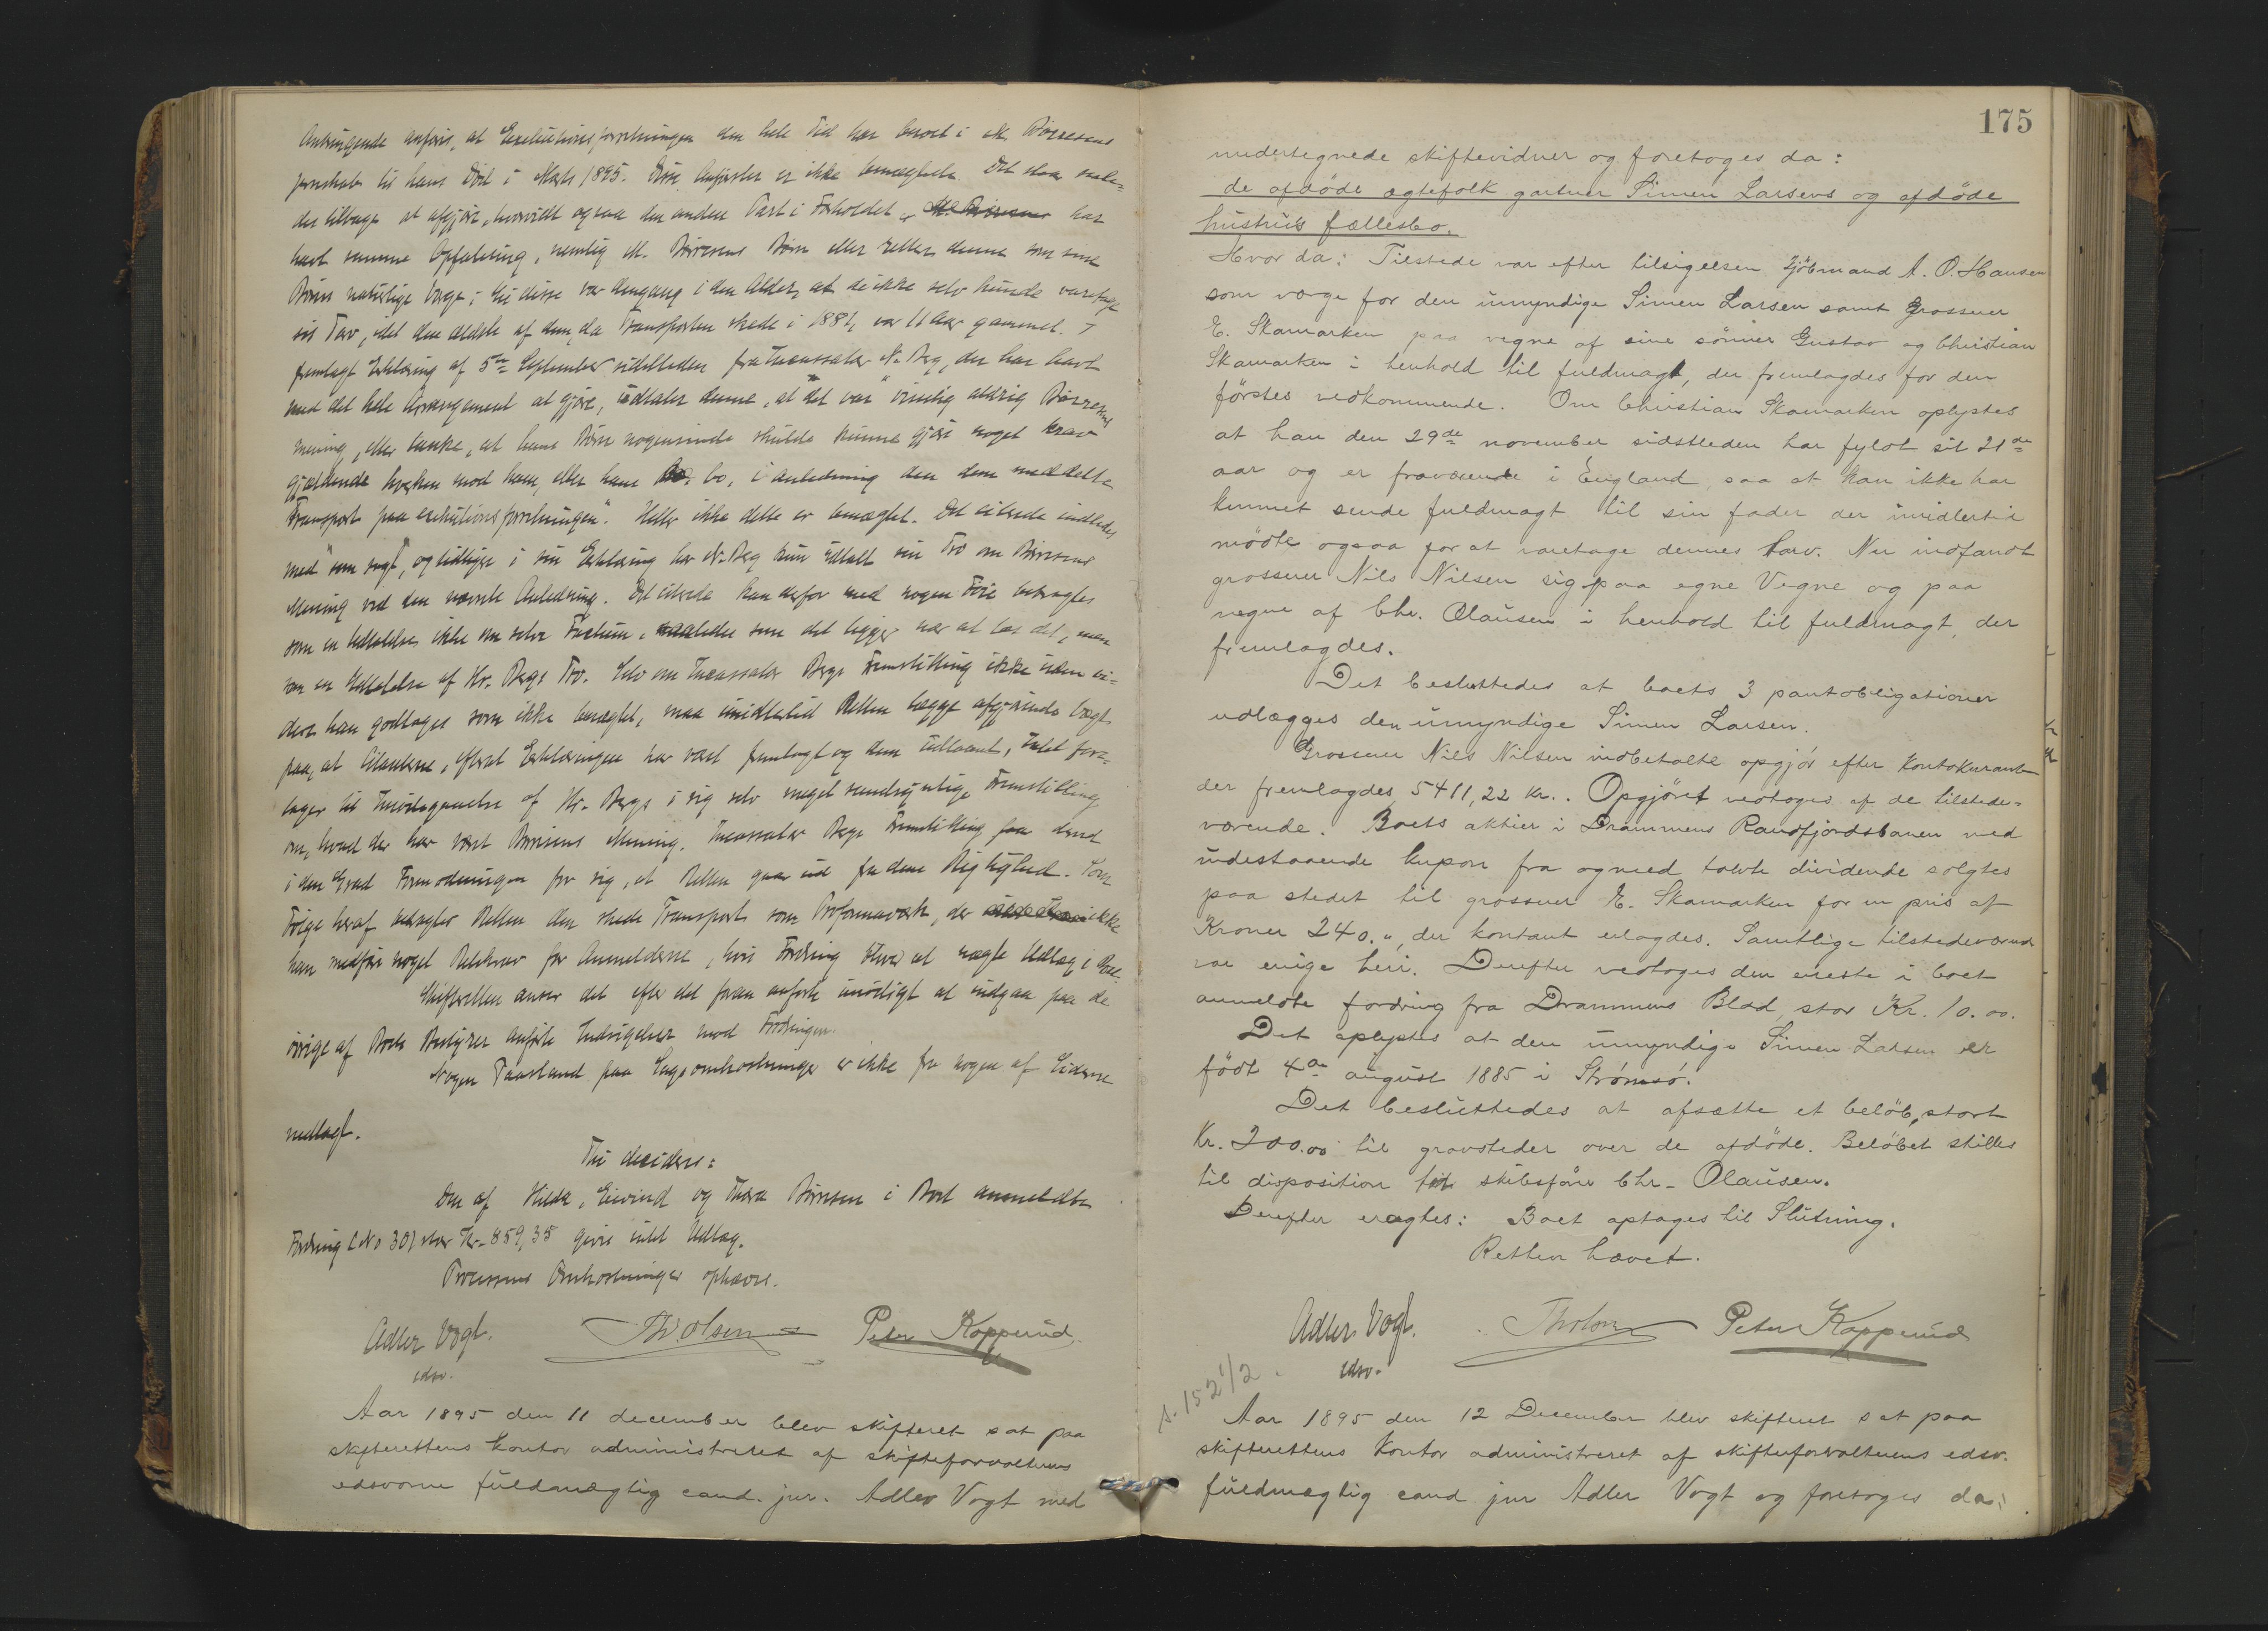 Anbringende anføres, at Executionsforretningen den hele Tid har beroet i M. Børresens
til hans Død i Marts 1895. Disse Anførsler er ikke benægtede. Det staar saale-
des tilbage at afgjøre, hvorvidt ogsaa den anden Part i Forholdet, har
havt samme Opfatning, nemlig M. Børresens Børn eller rettere denne som sine
Børns naturlige Værge; thi disse var dengang i den Alder, at de ikke selv kunde varetage
sit Tarv, idet den ældste af dem, da Transporten skede i 1881, var 11 Aar gammel. I
fremlagt Erklæring af 5te September sidstleden fra Incassator N. Berg, der har havt
med det hele Arrangement at gjøre, udtaler denne, at "det var" visselig aldrig Børresens
mening, eller tanke, at hans Børn nogensinde skulde kunne gjøre noget krav
gjældende hverken mod ham, eller hans bo, i anledning den dem meddelte
Transport paa exekutionsforretningen". Heller ikke dette er benægtet. Det citerede indledes
med "som sagt", og tidligere i sin Erklæring har N. Berg kun udtalt sin Tro om Børresens
Mening ved den nævnte Anledning. Det citerede kan derfor med nogen Føie betragtes
som en Udtalelse ikke om selve Factum, saaledes som det ligger nær at læse det, men
som en Udtalelse af Hr. Bergs Tro. Selv om Incassator Bergs Fremstilling ikke uden vi-
dere kan godtages som ikke benægtet, maa imidlertid Retten lægge afgjørende Vægt
paa, at Citanterne, efterat Erklæringen har været fremlagt og dem udlaant, Intet fore-
tager til Imødegaaelse af Hr. Bergs i sig selv meget sandsynlige Fremstilling
om, hvad der har været Børresens Mening. Incassator Bergs Fremstilling faar derved
i den Grad Formodningen for sig, at Retten gaar ud fra dens Rigtighed. Som
Følge heraf betragter Retten den skede Transport som Proformaværk, der ikke
kan medføre noget Retskrav for Anmelderne, hvis Fordring bliver at nægte Udlæg i Boet.
Skifteretten anser det efter det foran anførte unødigt at indgaa paa de
øvrige af Boets Bestyrer anførte Indsigelser mod Fordringen.
Nogen Paastand paa Sagsomkostninger er ikke fra nogen af Siderne
nedlagt.
Thi decideres:
Den af Hilda, Eivind og Thora Børresen i Boet anmeldte
Fordring (No 30) stor Kr. 859,35 gives intet Udlæg.
Processens Omkostninger ophæves.
Adler Vogt. Th Olsen Peter Kopperud
edsv.
Aar 1895 den 11 december blev skifteret sat paa
skifterettens kontor administreret af skifteforvalterens
edsvorne fuldmægtig cand. jur. Adler Vogt med
175
undertegnede skiftevidner og foretoges da:
de afdöde ægtefolk gartner Simen Larsens og afdöde
hustrus fællesbo.
Hvor da: Tilstede var efter tilsigelsen Sjömand A. O. Hansen
som værge for den umyndige Simen Larsen samt Grosserer
E. Skamarken paa vegne af sine sönner Gustav og Christian
Skamarken i henhold til fuldmagt, der fremlagdes for den
förstes vedkommende. Om Christian Skamarken oplystes
at han den 29de november sidstleden har fyldt sit 21de
aar og er fraværende i England, saa at han ikke har
kunnet sende fuldmagt til sin fader der imidlertid
mödte ogsaa for at varetage dennes tarv. Nu indfandt
grosserer Nils Nilsen sig paa egne Vegne og paa
vegne af Chr. Olausen i henhold til fuldmagt, der
fremlagdes.
Det besluttedes at boets 3 pantobligationer
udlægges den umyndige Simen Larsen.
Grosserer Nils Nilsen indbetalte opgjör efter Kontokurant
der fremlagdes, 5411,22 kr.. Opgjöret vedtoges af de tilstede-
værende. Boets aktier i Drammens Randfjordsbanen med
indestaaende kupon fra og med tolvte dividende solgtes
paa stedet til grosserer E. Skamarken for en pris af
Kroner 240.", der kontant erlagdes. Samtlige tilstedeværende
var enige heri. Derefter vedtoges den eneste i boet
anmeldte fordring fra Drammens Blad, stor Kr. 10.00.
Det oplystes at den umyndige Simen Larsen er
födt 4de august 1885 i Strömsö.
Det besluttedes at afsætte et belöb, stort
Kr. 200.00 til gravsteder over de afdöde. Belöbet stilles
til disposition for skibsförer Chr. Olausen.
Derefter eragtes: Boet optages til Slutning.
Retten hævet.
Adler Vogt. Th Olsen Peter Kopperud
edsv.
s. 152 1/2.
Aar 1895 den 12 December blev skifteret sat paa
skifterettens Kontor administreret af skifteforvalterens edsv.
fuldmægtig cand jur Adler Vogt og foretoges da: